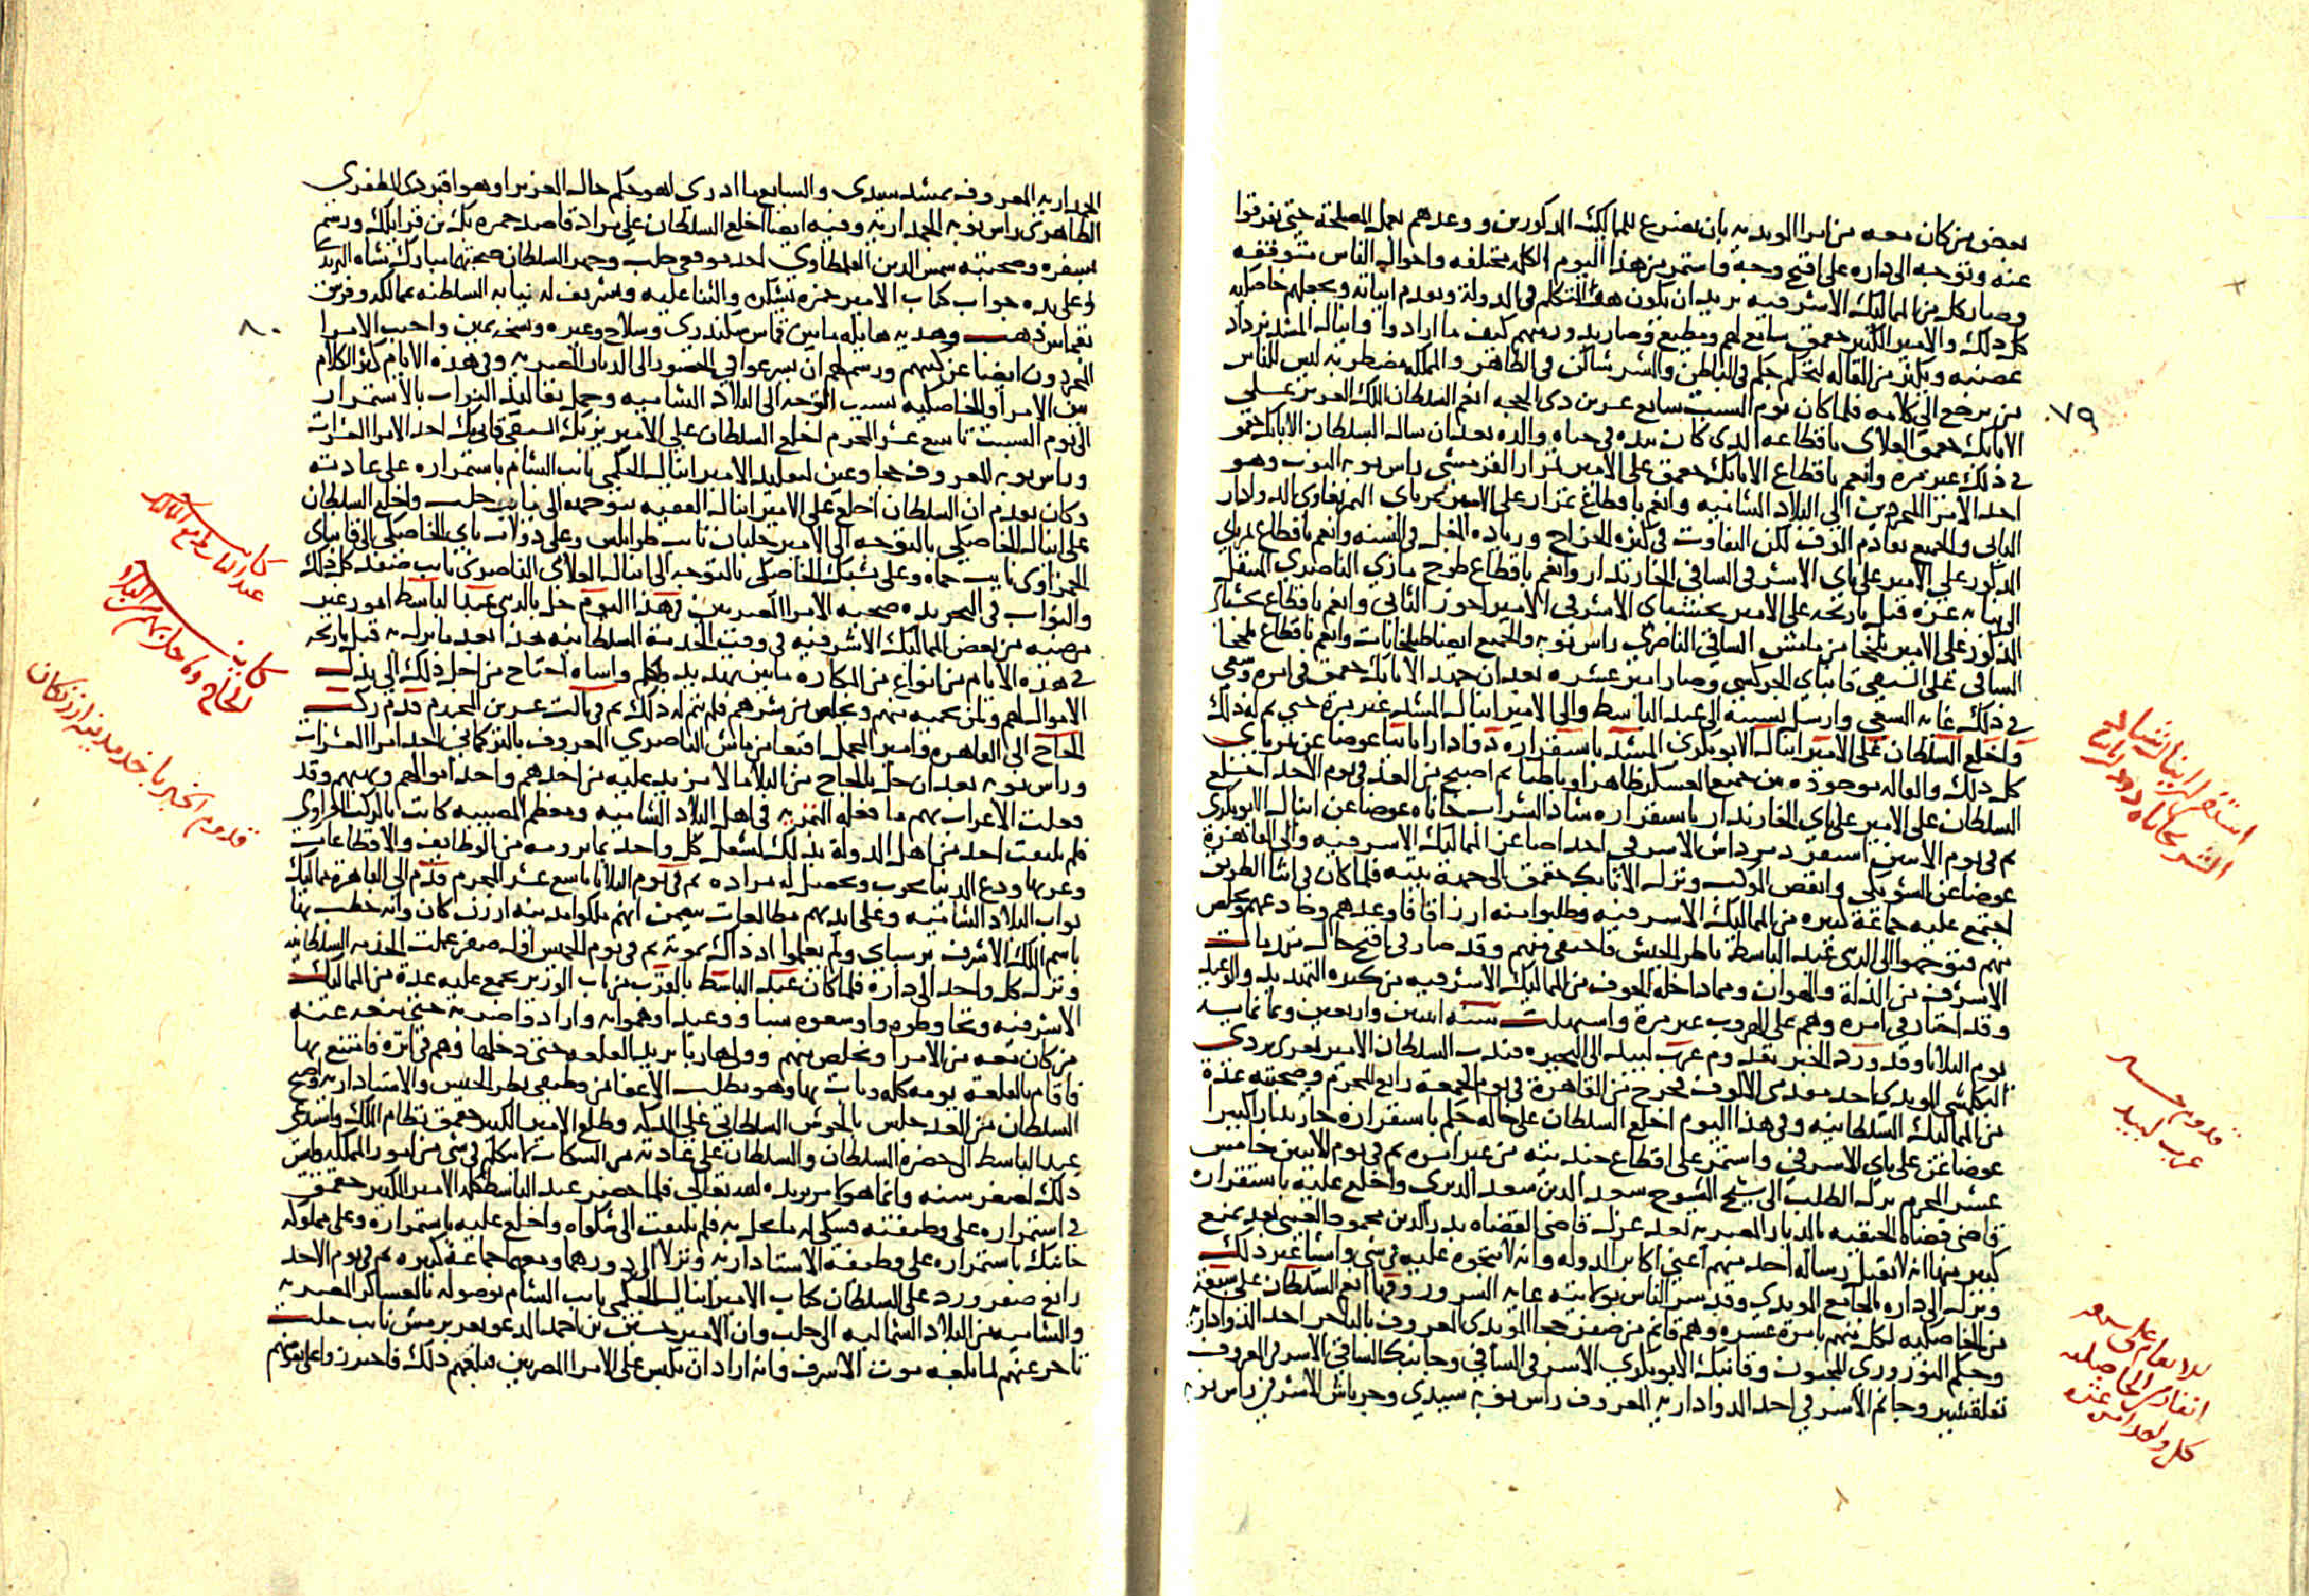 بعض من كان معه من امرا المويديه بان يضرع للمماليك المذكورين ووعدهم بعمل المصلحة حتى تفرقوا
عنه وتوجه الى داره على اقبح وجه واستمر من هذا اليوم الكلمه مختلفه واحوال الناس متوقفه
وصار كل من المماليك الاشرفيه يريد ان يكون هو المتكلم في الدولة ويقدم ابناته ويجعلهم خاصكيه
كل ذلك والامير الكبير جقمق سامع لهم ومطيع وصار يدور معهم كيف ما ارادوا واينال المشد يزداد
غضبه ويكثر من القاله لتحكم جكم في الباطن والشر ساكن في الظاهر والمملكه مضطربه ليس للناس
من يرجع الى كلامه فلما كان يوم السبت سابع عشرين ذي الحجه انعم السلطان الملك العزيز على
الاتابك جقمق العلاى باقطاعه الذى كان بيده في حياه والده بعد ان سال السلطان الاتابك جقمق
في ذلك غير مره وانعم باقطاع الاتابك جقمق على الامير تمراز القرمشى راس نوبه النوب وهو
احد الامرا المجردين الى البلاد الشاميه وانعم باقطاع تمراز على الامير تمرباى التمربغاوى الدوادار
الثانى والجميع تقادم الوف لكن التفاوت في كثره الخراج وزياده المغل في السنه وانعم باقطاع تمرباى
المذكور على الامير على باى الاشرفى الساقى الخازندار وانعم باقطاع طوخ مازى الناصرى المنتقل
الى نيابه غزه قبل تاريخه على الامير يخشباى الاشرفى الامير اخور الثانى وانعم باقطاع يخشباى
المذكور على الامير يلخجا من مامش الساقى الناصرى راس نوبه والجميع ايضا طبلخانات وانعم باقطاع يلخجا
الساقى على السيفى قانباى الجركسى وصار امير عشره بعد ان جهد الاتابك جقمق في امره وسعى
في ذلك غايه السعى وارسل بسببه الى عبد الباسط والى الامير اينال المشد غير مرة حتى تم له ذلك
واخلع السلطان على الامير اينال الابوبكرى المشد باستقراره دوادارا ثانيا عوضا عن تمرباى
كل ذلك والقاله موجوده بين جميع العسكر ظاهرا وباطنا ثم اصبح من الغد في يوم الاحد اخلع
السلطان على الامير على باى الخازندار باستقراره شاد الشراب خاناه عوضا عن اينال الابوبكرى
ثم في يوم الاثنين استقر دمرداش الاشرفى احد اصاغر المماليك الاشرفيه والى القاهرة
عوضا عن الشويكى وانفض الموكب ونزل الاتابك جقمق الى جهة بيته فلما كان في اثنا الطريق
اجتمع عليه جماعة كبيره من المماليك الاشرفيه وطلبوا منه ارزاقا فاوعدهم وخادعهم وتخلص
منهم فتوجهوا الى الزينى عبد الباسط ناظر الجيش فاختفى منهم وقد صار فى اقبح حال منذ مات
الاشرف من الذلة والهوان ومما داخله الخوف من المماليك الاشرفيه من كثره التهديد والوعيد
وقد احتار في امره وهم على الهروب غير مرة واستهلت سنه اثنين واربعين وثمانمايه
يوم الثلاثا وقد ورد الخبر بقدوم عرب لبيد الى البحيره فندب السلطان الامير تغرى بردى
البكلمشى المويدى احد مقدمى الالوف فخرج من القاهرة في يوم الجمعة رابع المحرم وصحبته عدة
من المماليك السلطانيه وفي هذا اليوم اخلع السلطان على خاله جكم باستقراره خازندارا كبيرا
عوضا عن على باى الاشرفى واستمر على اقطاع جنديته من غير امره ثم في يوم الاثنين خامس
عشر المحرم برز الطلب الى شيخ الشيوخ سعد الدين سعد الديرى واخلع عليه باستقراره
قاضى قضاه الحنفيه بالديار المصريه بعد عزل قاضى القضاه بدر الدين محمود العينى بعد تمنع
كبير منها انه لا تقبل رساله احد منهم اعنى اكابر الدوله وانه لا يتجوه عليه في شى واشيا غير ذلك
ونزل الى داره بالجامع المويدى وقد سر الناس بولايته غايه السرور وفيها انعم السلطان على سبعة
من الخاصكيه لكل منهم بامرة عشره وهم قانم من صفر خجا المويدى المعروف بالتاجر احد الدواداريه
وجكم النوروزى المجنون وقانبك الابوبكرى الاشرفى الساقى وجانبك الساقى الاشرفى المعروف
بقلقسيز وجانم الاشرفى احد الدواداريه المعروف راس نوبه سيدى وجرباش الاشرفى راس نوبه
٧٩
استقرار اينال شاد
الشربخاناه دوادارا ثانيا
قدوم
عرب لبيد
الانعام على سبعه
انفار من الخاصكيه
كل واحد امره عشره
الجمداريه المعروف بمشد سيدى والسابع ما ادرى اهو جكم خال العزيز او هو اقبردى المظفرى
الظاهرى راس نوبه الجمداريه وفيه ايضا اخلع السلطان على مراد قاصد حمزه بك بن قرايلك ورسم
بسفره وصحبته شمس الدين القلطاوى احد موقعى حلب وجهز السلطان صحبتهما مبارك شاه البريدى
وعلى يده جواب كتاب الامير حمزه بشكره والثنا عليه وتشريف له بنيابه السلطنه بممالكه وفرس
بقماش ذهب وهديه هايله ما بين قماش سكندرى وسلاح وغيره ونسخه يمين واجيب الامرا
المجردون ايضا عن كتبهم ورسم لهم ان يسرعوا في الحضور الى الديار المصريه وفي هذه الايام كثر الكلام
بين الامرا والخاصكيه بسبب التوجه الى البلاد الشاميه وحمل تقاليد النواب بالاستمرار
الى يوم السبت تاسع عشر المحرم اخلع السلطان على الامير ازبك السيفى قانى بك احد الامرا العشرات
وراس نوبه المعروف بجحا وعين لتقليد الامير اينال الجكمى نايب الشام باستمراره على عادته
وكان تقدم ان السلطان اخلع على الامير اينال الفقيه بتوجهه الى نايب حلب واخلع السلطان
على اينال الخاصكى بالتوجه الى الامير جلبان نايب طرابلس وعلى دولات باى الخاصكى الى قانباى
الحمزاوى نايب حماه وعلى يشبك الخاصكى بالتوجه الى اينال العلاى الناصرى نايب صفد كل ذلك
والنواب في التجريده صحبه الامرا المصريين وفي هذا اليوم حل بالزينى عبد الباسط امور غير
مرضيه من بعض المماليك الاشرفيه في وقت الخدمة السلطانيه هذا بعد ما نزل به قبل تاريخه
في هذه الايام من انواع من المكاره ما بين تهديد ولكم واساه احتاج من اجل ذلك الى بذل
الاموال لهم ولمن يحميه منهم ويخلصه من شرهم فلم يتم له ذلك ثم في ثالث عشرين المحرم قدم ركب
الحاج الى القاهره وامير المحمل اقبغا من مامش الناصرى المعروف بالتركمانى احد امرا العشرات
وراس نوبه بعد ان حل بالحاج من البلا ما لا مزيد عليه من اخذهم واخذ اموالهم ونهبهم وقد
فعلت الاعراب بهم ما فعله التمريه في اهل البلاد الشاميه ومعظم المصيبه كانت بالركب الغزاوى
فلم يلتفت احد من اهل الدولة بذلك لشغل كل واحد بما يرومه من الوظايف والاقطاعات
وغيرها ودع الدنيا تخرب ويحصل له مراده ثم في يوم الثلاثا تاسع عشر المحرم قدم الى القاهرة مماليك
نواب البلاد الشاميه وعلى ايديهم مطالعات تتضمن انهم ملكوا مدينه ارزنكان وانه خطب بها
باسم الملك الاشرف برسباى ولم يعلموا اذ ذاك بموته ثم في يوم الخميس اول صفر عملت الخدمه السلطانيه
ونزل كل واحد الى داره فلما كان عبد الباسط بالقرب من باب الوزير تجمع عليه عدة من المماليك
الاشرفيه وتحاوطوه واوسعوه سبا ووعيدا وهموا به وارادوا ضربه حتى منعه عنه
من كان معه من الامرا وتخلص منهم وولى هاربا يريد القلعه حتى دخلها وهم في اثره فامتنع بها
فاقام بالقلعه يومه كله وبات بها وهو يطلب الاعفا من وظيفتى نظر الجيش والاستاداريه واصبح
السلطان من الغد جلس بالحوش السلطانى على الدكه وطلع الامير الكبير جقمق نظام الملك واستدعى
عبد الباسط الى حضره السلطان والسلطان على عادته من السكات لا يتكلم في شى من امور المملكه وليس
ذلك لصغر سنه وانما هو لامر يريده الله تعالى فلما حضر عبد الباسط كلمه الامير الكبير جقمق
في استمراره على وظيفته فشكى له ما حل به فلم يلتفت الى شكواه واخلع عليه باستمراره وعلى مملوكه
جانبك باستمراره على وظيفة الاستاداريه ونزلا الى دورهما ومعهما جماعة كبيره ثم في يوم الاحد
رابع صفر ورد على السلطان كتاب الامير اينال الجكمى نايب الشام بوصوله بالعساكر المصريه
والشاميه من البلاد الشماليه الى حلب وان الامير حسين بن احمد المدعو تغرى برمش نايب حلب
تاخر عنهم لما بلغه موت الاشرف وانه اراد ان يكبس على الامرا المصريين فبلغهم ذلك فاحترزوا على نفوسهم
٨٠
قدوم الخبر باخذ مدينه ارزنكان